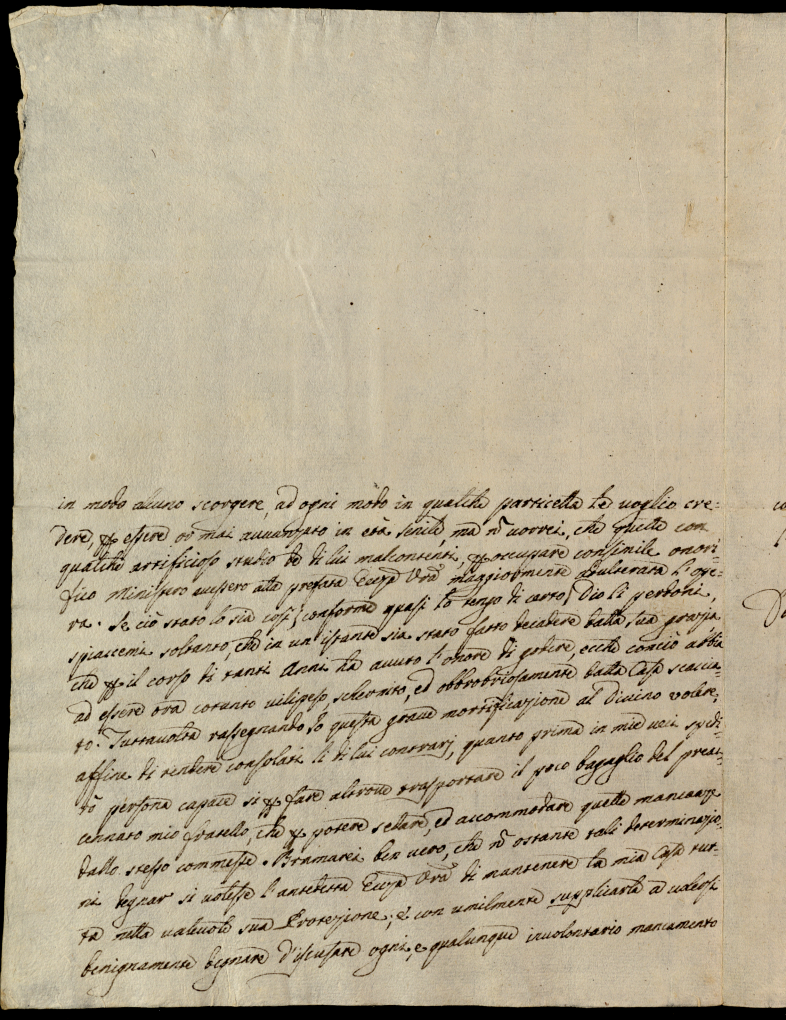 in modo alcuno scorgere, ad ogni modo in qualche particella le voglio cre-
dere, p essere or mai avvanzato in età senile, ma nõ vorrei, che quelle con
qualche artificioso studio de di lui malcontenti, p oscurare consimile onori-
fico Ministero avessero alla prefata Eccza Vrã maggiormente l'ope-
ra. Se ciò stato lo sia così, conforme quasi lo tengo di certo, Dio li perdoni,
spiaccemi soltanto, che in un istante sia stato fatto decadere dalla sua grazia,
che p il corso di tanti Anni ha avuto l'onore di godere, e che con ciò abbia
ad essere ora cotanto vilipeso, schernito, ed obbrobriosamente dalla Casa scaccia-
to. Tuttavolta rassegnando Io questa grave mortificazione al Divino volere,
affine di rendere consolati li di lui contrarj, quanto prima in mie veci spedi-
rò persona capace si p fare altrove trasportare il poco bagaglio del preac-
cennato mio fratello, che p potere sedare, ed accommodare quelle mancanze
dallo stesso commesse. Bramarei ben vero, che nõ ostante tali determinazio-
ni degnar si volesse l'antedetta Eccza Vrã di mantenere la mia Casa tut-
ta nella valevole sua Protezione; e con umilmente supplicarla a volersi
benignamente degnare d'iscusare ogni, e qualunque involontario mancamento